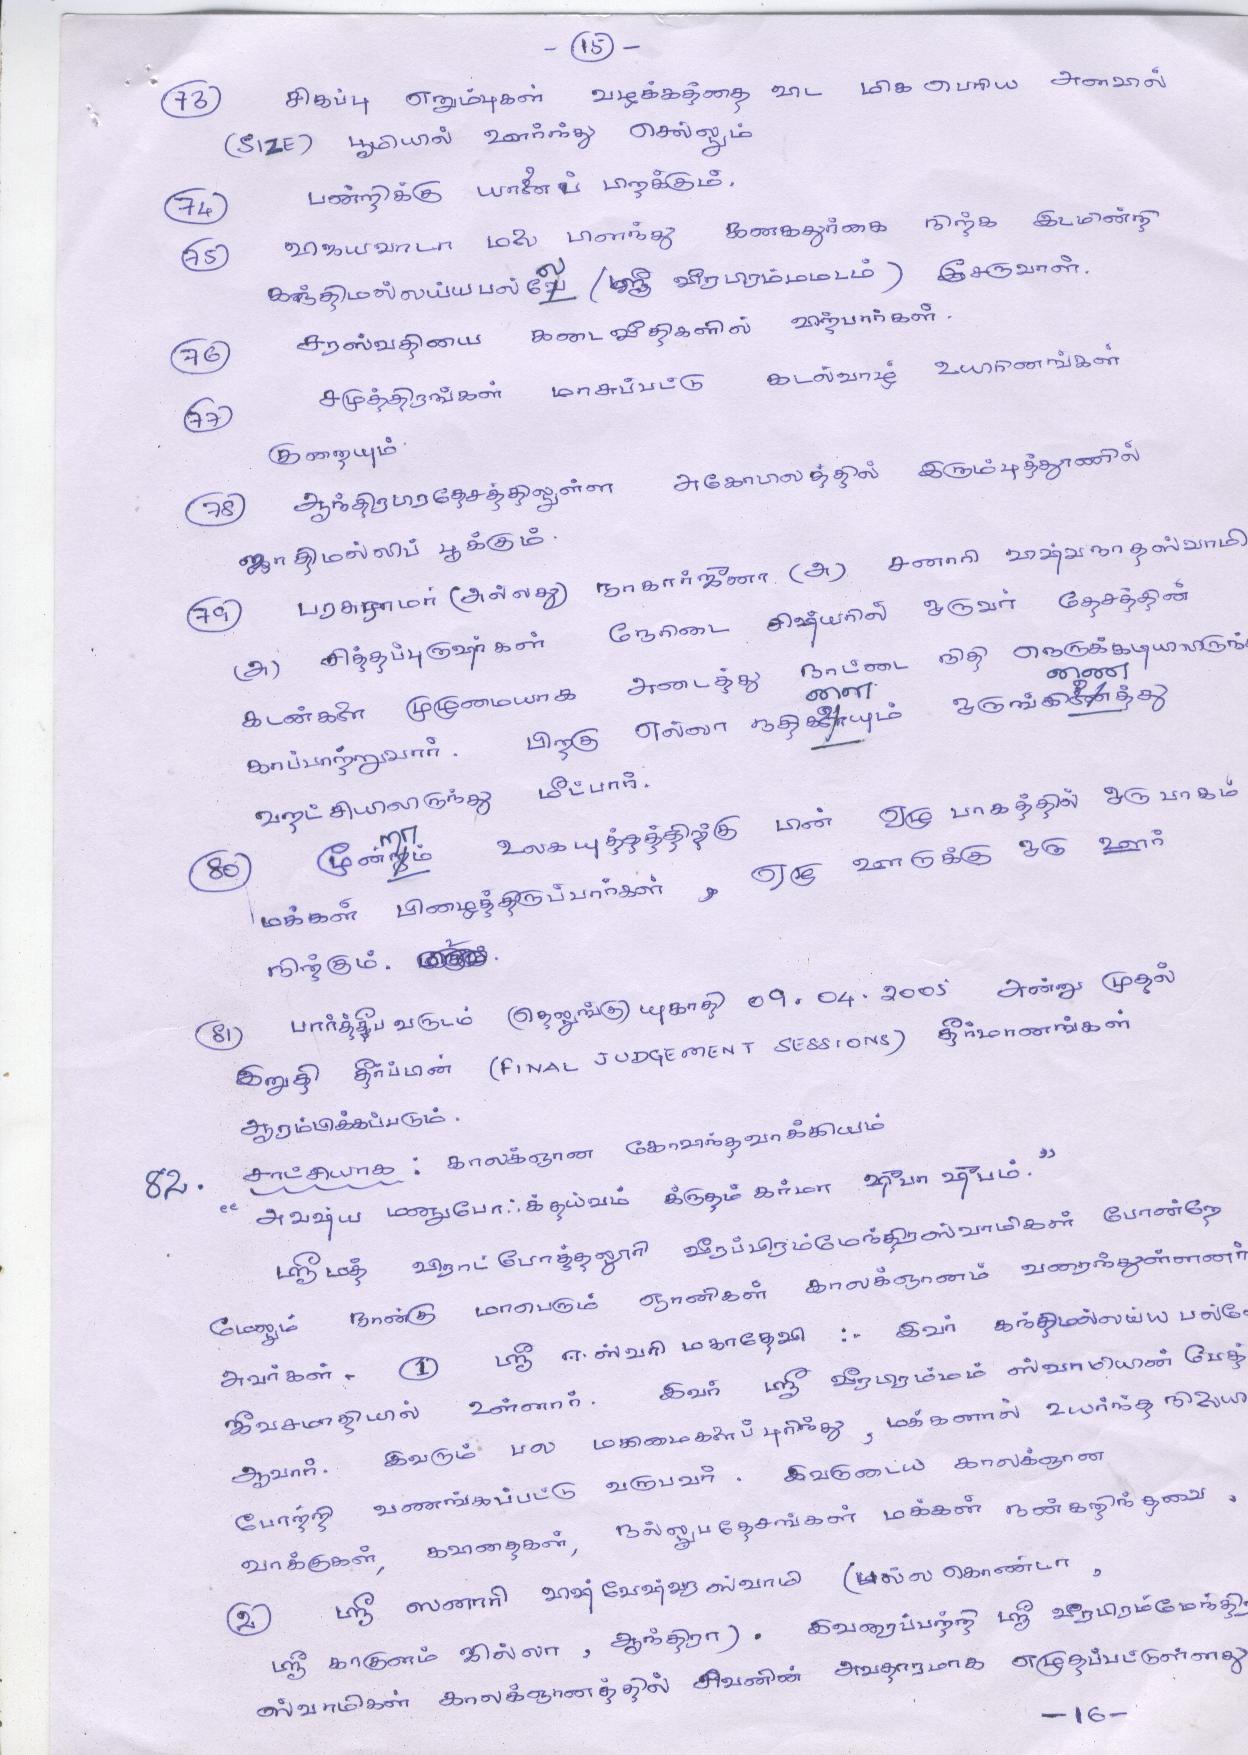 - (15) -
(73) சிகப்பு எறும்புகள் வழக்கத்தை விட மிக பெரிய அளவில்
(SIZE) பூமியில் ஊர்ந்து செல்லும்
(74) பன்றிக்கு யானை பிறக்கும்.
(75) விஜயவாடா மலை பிளந்து கனகதுர்கை நிற்க இடமின்றி
கந்திமல்லய்யபல்லே (ஸ்ரீ வீரபிரம்மமடம்) இசருவாள்.
(76) சரஸ்வதியை கடைவீதிகளில் விற்பார்கள்.
(77) சமுத்திரங்கள் மாசுப்பட்டு கடல்வாழ் உயிரினங்கள்
குறையும்
(78) ஆந்திரபிரதேசத்திலுள்ள அகோபிலத்தில் இரும்புத்தூணில்
ஜாதிமல்லிப் பூக்கும்.
(79) பரசுராமர் (அல்லது) நாகார்ஜீனா (அ) சனாரி விஷ்வநாதஸ்வாமி
(அ) சித்தப்புருஷர்கள் நேரிடை சிஷ்யரில் ஒருவர் தேசத்தின்
கடன்களை முழுமையாக அடைத்து நாட்டை நிதி நெருக்கடியிலிருந்
காப்பாற்றுவார். பிறகு எல்லா நதிகளையும் ஒருங்கிணைத்து
வறட்சியிலிருந்து மீட்பார்.
(80) மூன்றாம் உலகயுத்தத்திற்கு பின் ஏழு பாகத்தில் ஒரு பாகம்
மக்கள் பிழைத்திருப்பார்கள், ஏழு ஊருக்கு ஒரு ஊர்
நிற்கும்.
(81) பார்த்தீப வருடம் (தெலுங்கு) யுகாதி 09.04.2005 அன்று முதல்
இறுதி தீர்ப்பின் (FINAL JUDGEMENT SESSIONS) தீர்மானங்கள்
ஆரம்பிக்கப்படும்.
82. சாட்சியாக : காலக்ஞான கோவிந்தவாக்கியம்
"அவஷ்ய மனுபோஃக்தய்வம் க்ருதம் கர்மா ஷீபா ஷீபம்."
ஸ்ரீமத் விராட் போத்தலூரி வீரப்பிரம்மேந்திரஸ்வாமிகள் போன்றே
மேலும் நான்கு மாபெரும் ஞானிகள் காலக்ஞானம் வரைந்துள்ளனர்
அவர்கள் - (1) ஸ்ரீ ஈஸ்வரி மகாதேவி :- இவர் கந்திமல்லய்ய பல்லே
ஜீவசமாதியில் உள்ளார். இவர் ஸ்ரீ வீரபிரம்மம் ஸ்வாமியின் பேத்
ஆவார். இவரும் பல மகிமைகளைப் புரிந்து, மக்களால் உயர்ந்த நிலையி
போற்றி வணங்கப்பட்டு வருபவர். இவருடைய காலக்ஞான
வாக்குகள், கவிதைகள், நல்லுபதேசங்கள் மக்கள் நன்கறிந்தவை.
(2) ஸ்ரீ ஸனாரி விஷ்வேஷ்வரஸ்வாமி (பல்லகொண்டா,
ஸ்ரீகாகுளம் ஜில்லா, ஆந்திரா). இவரைப்பற்றி ஸ்ரீ வீரபிரம்மேந்திர
ஸ்வாமிகள் காலக்ஞானத்தில் சிவனின் அவதாரமாக எழுதப்பட்டுள்ளது
-16-